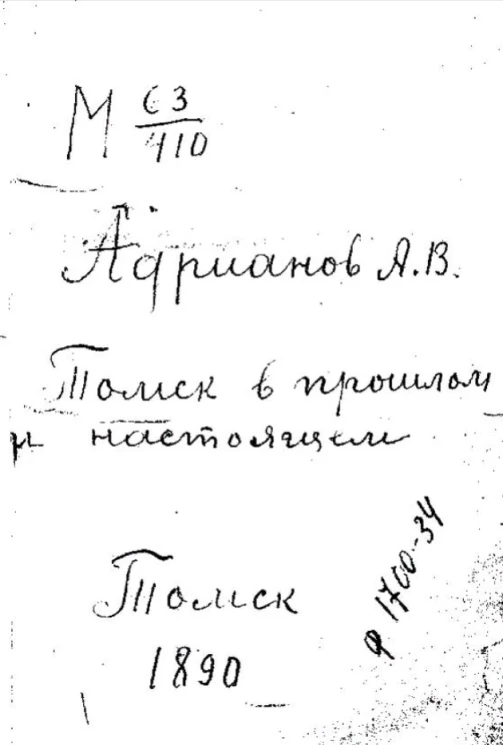 М 63
410
Адрианов А.В.
Томск в прошлом
и настоящем
Томск
1890
Ф 1700-34